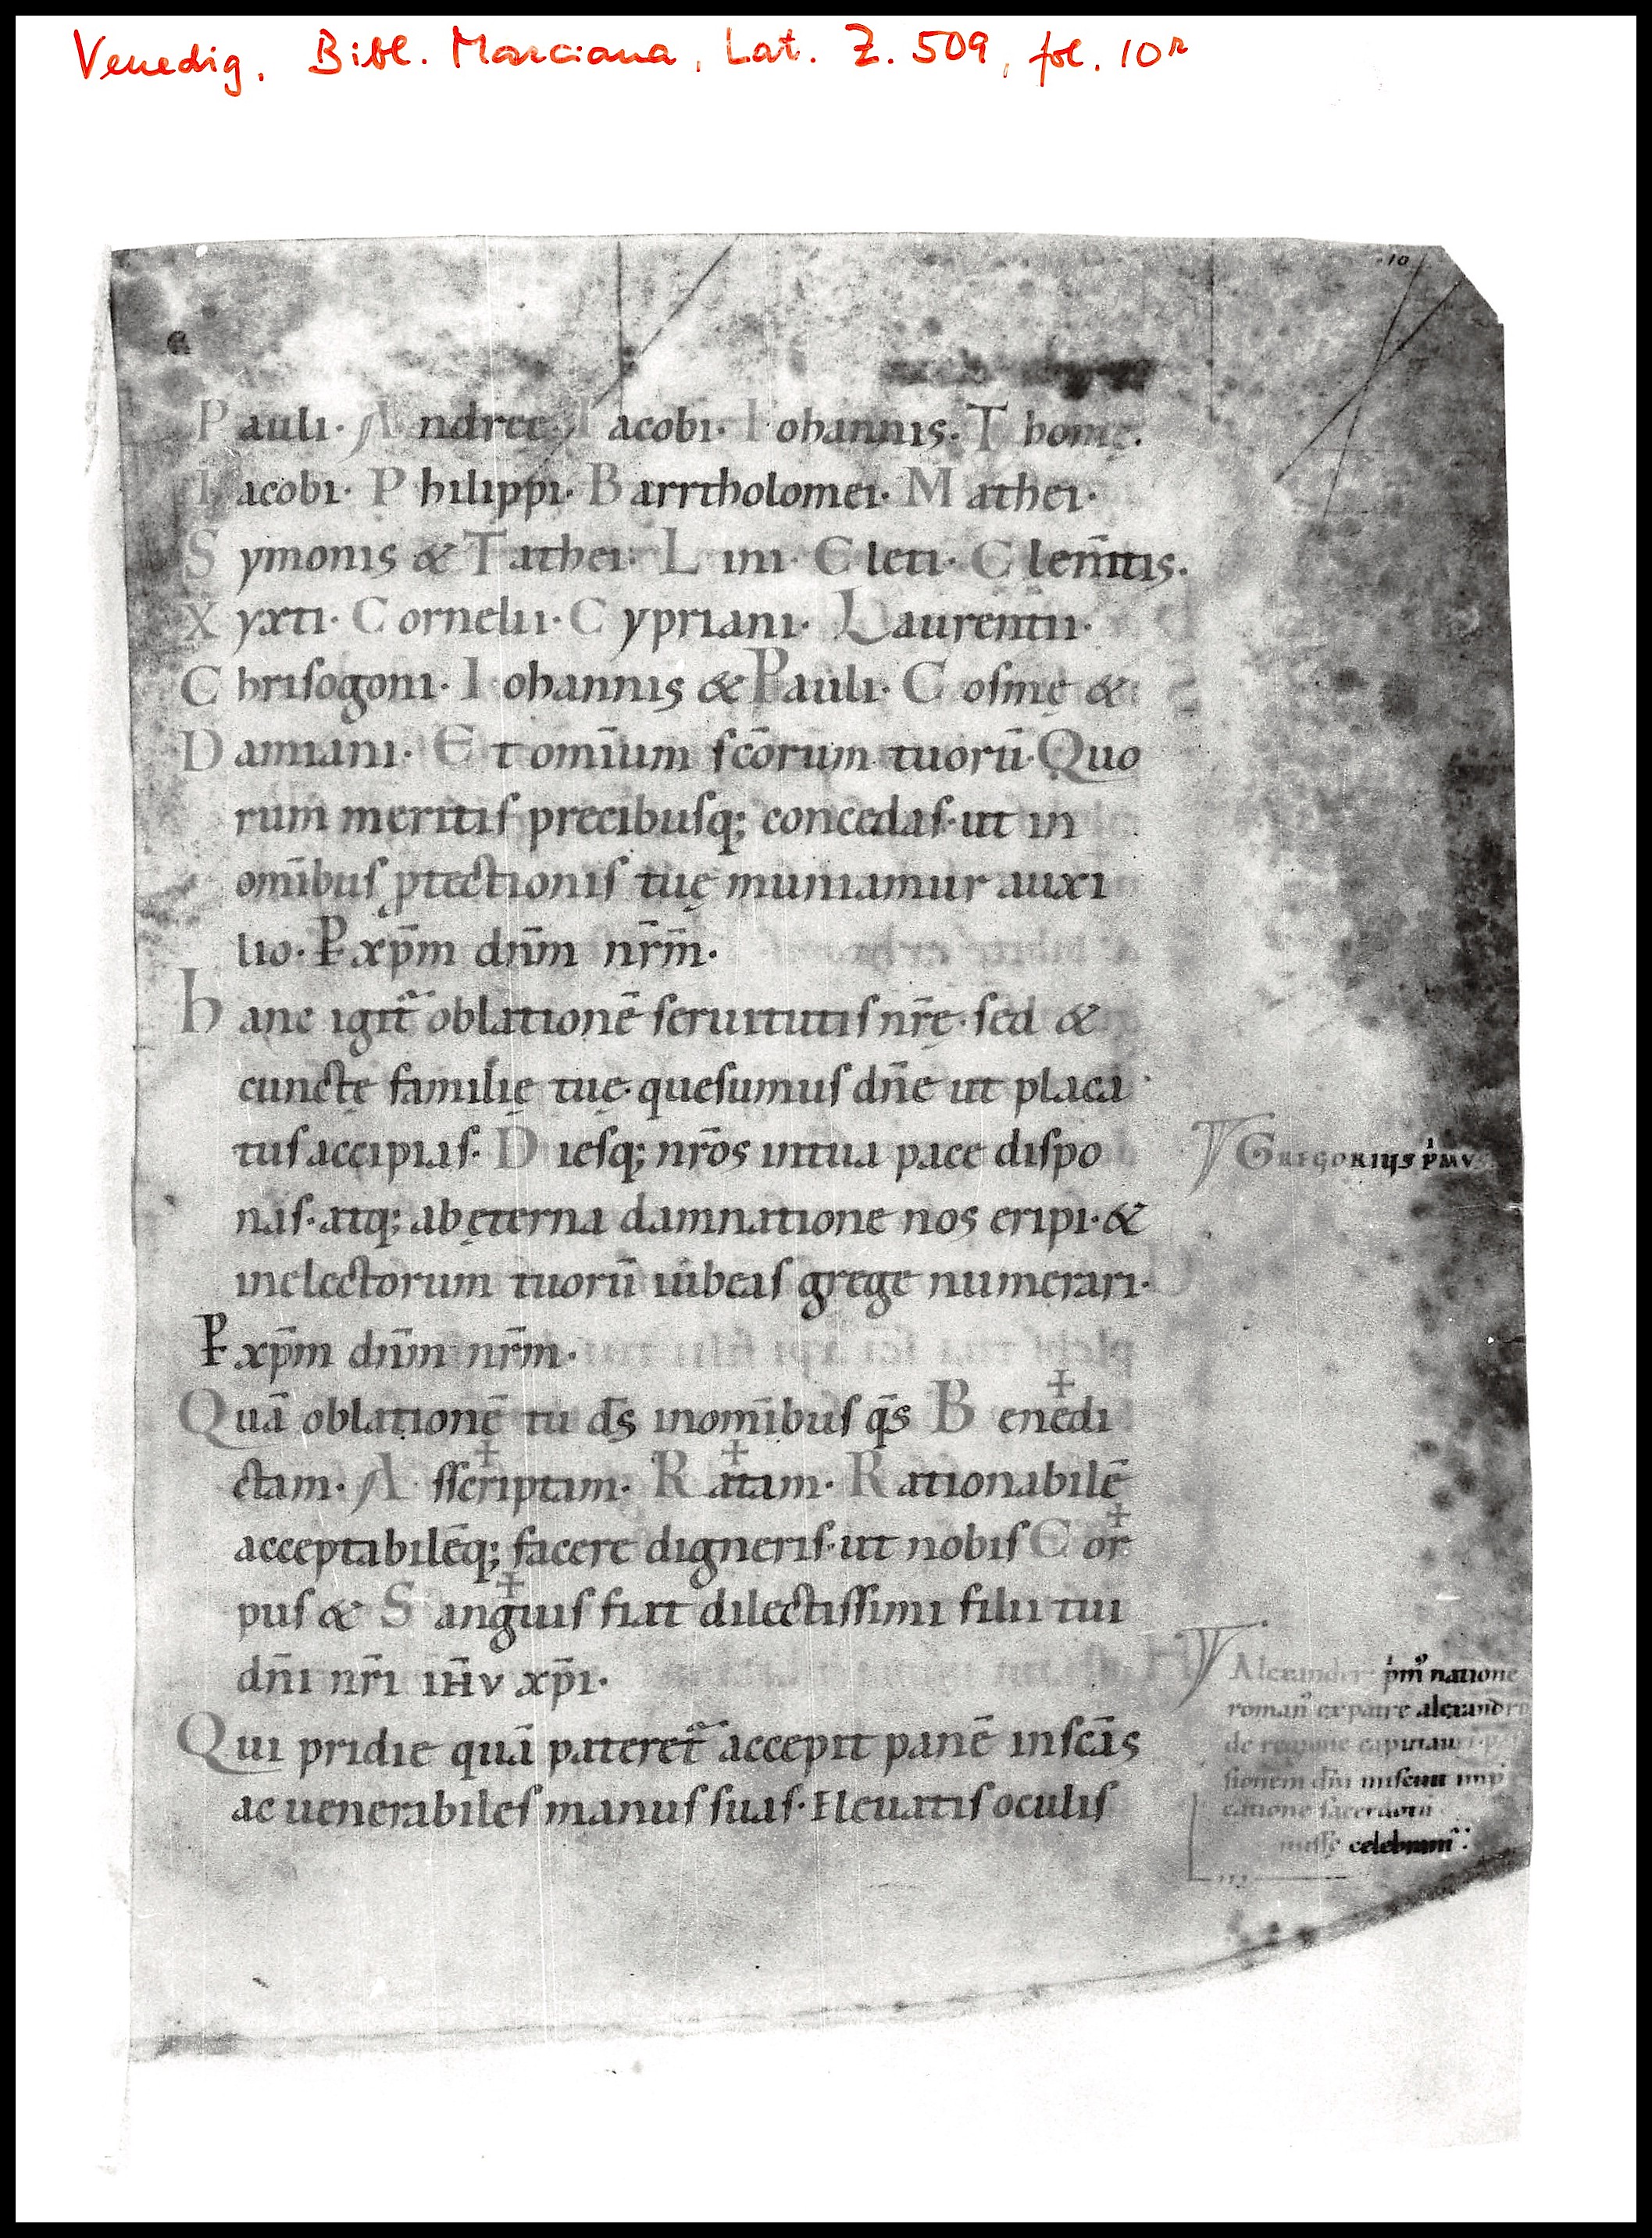 Venedig. Bibl. Marciana, Lat. Z. 509, fol. 10r
10
Pauli· Andree· Iacobi· Iohannis· Thomę·
Iacobi· Philippi· Barrtholomei· Mathei·
Symonis & Tathei· Lini· Cleti· Clem̄tis·
Xyxti· Cornelii· Cypriani· Laurentii·
Chrisogoni· Iohannis & Pauli· Cosmę &
Damiani· Et om̄ium sc̄orum tuorū· Quo
rum meritis precibusq; concedas· ut in
om̄ibus ꝓtectionis tuę muniamur auxi
lio· P xp̄m dn̄m nr̄m·
hanc igit̄ oblationē seruitutis nr̄ę· sed &
cunctę familię tuę· quesumus dn̄e ut placa
tus accipias· Diesq; nr̄os intua pace dispo
nas· atq; ab ęterna damnatione nos eripi· &
inelectorum tuorū iubeas grege numerari·
P xp̄m dn̄m nr̄m·
Quā oblationē tu ds̄ inom̄ibus qs̄ Benedi
ctam· Asscriptam· Ratam· Rationabilē
acceptabilēq; facere digneris· ut nobis Cor
pus & Sanguis fiat dilectissimi filii tui
dn̄i nr̄i iħv xp̄i·
Qui pridie quā pateret̄ accepit panē inscās
ac uenerabiles manus suas· Eleuatis oculis
Gregorius
Alexander pm' natione
roman' ex patre alexandro
de regione capitauri
sionem dn̄i miscuit
catione sacerdotū
missę celebrant̄